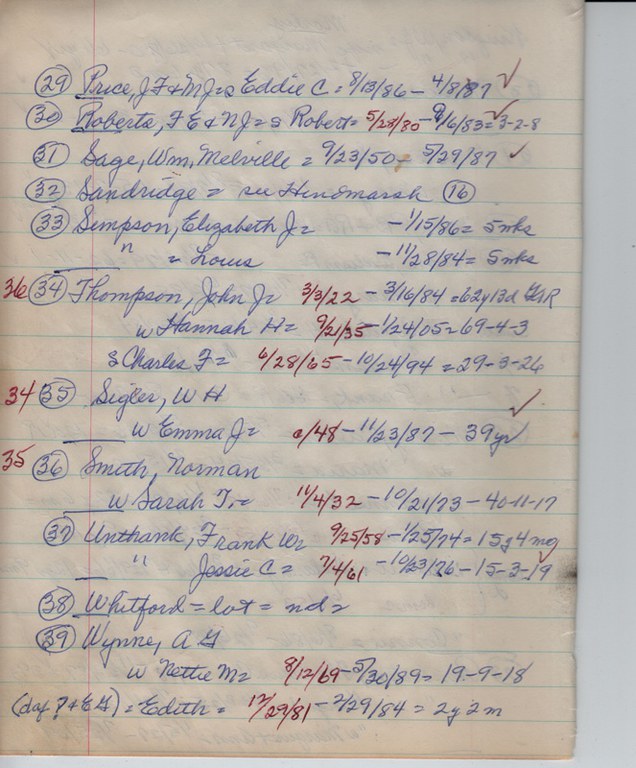 (29) Price, J F & M J = s Eddie C = 8/13/86 - 4/8/87 ✓
(30) Roberts, F E & N J = s Robert = 5/28/80 - 9/6/83 = 3-2-8 ✓
(31) Sage, Wm, Melville = 9/23/50 - 5/29/87 ✓
(32) Sandridge = see Hindmarsh (16)
(33) Simpson, Elizabeth J = - 1/15/86 = 5 mks
" = Louis - 11/28/84 = 5 mks
36 (34) Thompson, John J = 3/3/22 - 3/16/84 = 62y 13d GAR
w Hannah H = 9/21/35 - 1/24/05 = 69-4-3
s Charles F = 6/28/65 - 10/24/94 = 29-3-26
34 (35) Sigler, W H ✓
w Emma J = c/48 - 11/23/87 - 39 yr
35 (36) Smith, Norman
w Sarah T. = 11/4/32 - 10/21/73 - 40-11-17
(37) Unthank, Frank W = 9/25/58 - 1/25/74 = 15y 4 mo
" Jessie C = 7/4/61 - 10/23/76 - 15-3-19
(38) Whitford = lot = nd =
(39) Wynne, A G
w Nettie M = 8/12/69 - 5/30/89 = 19-9-18
(dau ? & E G) = Edith = 12/29/81 - 2/29/84 = 2y 2m